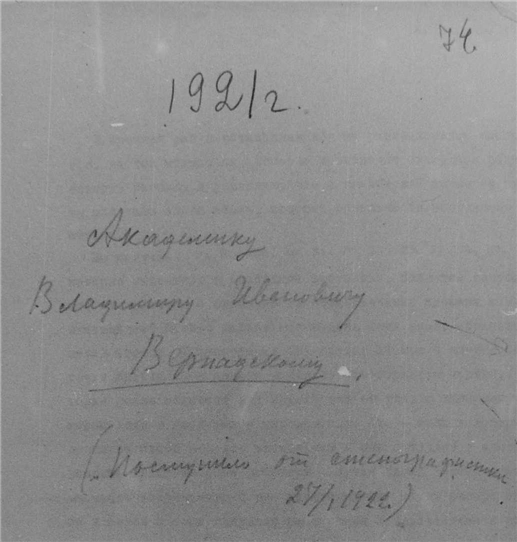 74.
1921 г.
Академику
Владимиру Ивановичу
Вернадскому.
(Поступило от стенографистки
27/I 1922.)